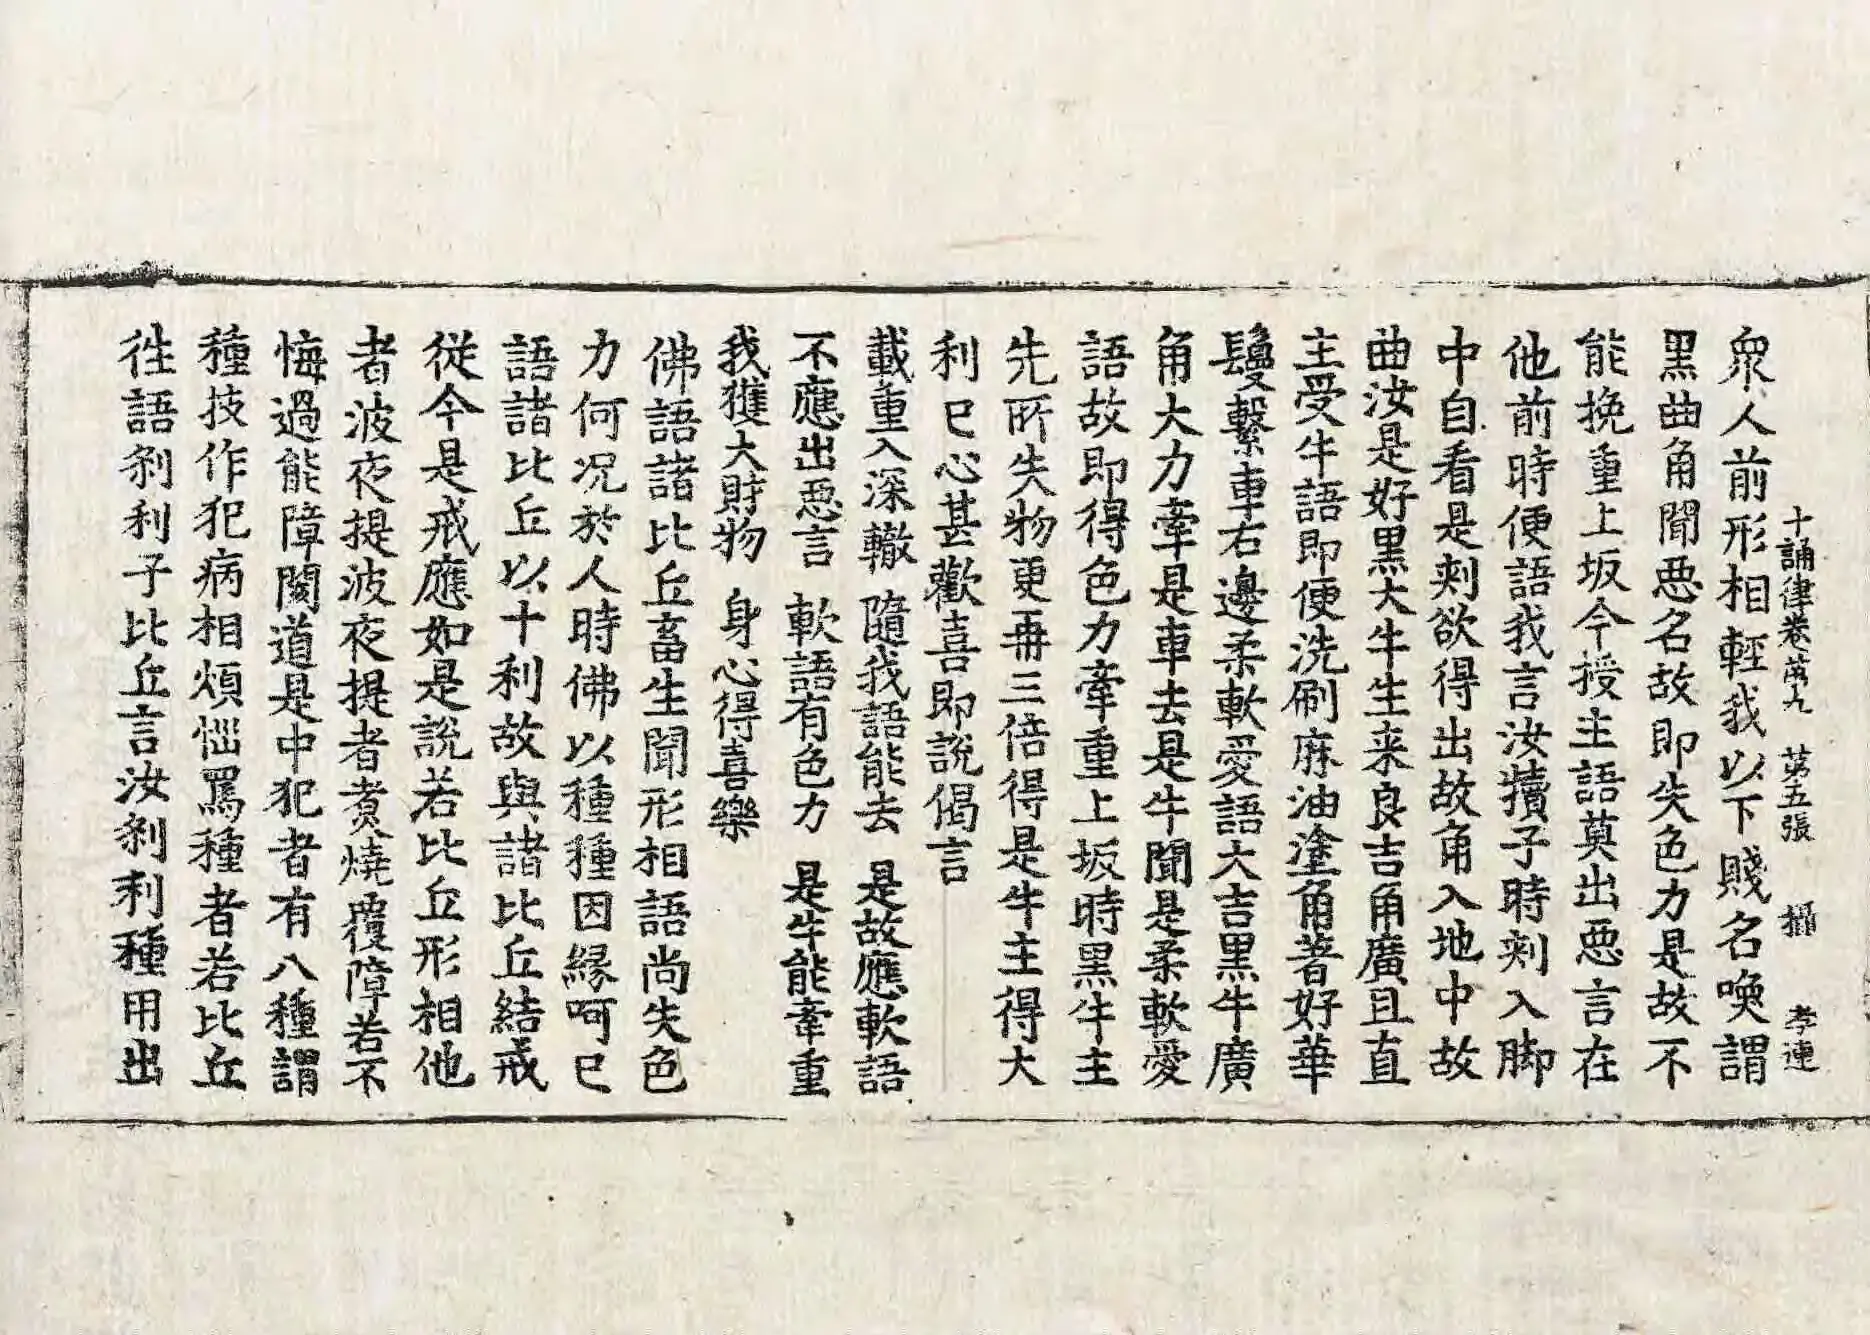 十誦律卷第九　第五張　攝　孝連
衆人前形相輕我以下賤名喚謂
黑曲角聞惡名故即失色力是故不
能挽重上坂今授主語莫出惡言在
他前時便語我言汝犢子時刾入脚
中自看是刾欲得出故角入地中故
曲汝是好黑大牛生来良吉角廣且直
主受牛語即便洗刷麻油塗角著好華
鬘繫車右邊柔軟愛語大吉黑牛廣
角大力牽是車去是牛聞是柔軟愛
語故即得色力牽重上坂時黑牛主
先所失物更再三倍得是牛主得大
利已心甚歡喜即說偈言
載重入深轍　隨我語能去　是故應軟語
不應出惡言　軟語有色力　是牛能牽重
我獲大財物　身心得喜樂
佛語諸比丘畜生聞形相語尚失色
力何況於人時佛以種種因緣呵已
語諸比丘以十利故與諸比丘結戒
從今是戒應如是說若比丘形相他
者波夜提波夜提者煑燒覆障若不
悔過能障閡道是中犯者有八種謂
種技作犯病相煩惱罵種者若比丘
往語刹利子比丘言汝刹利種用出